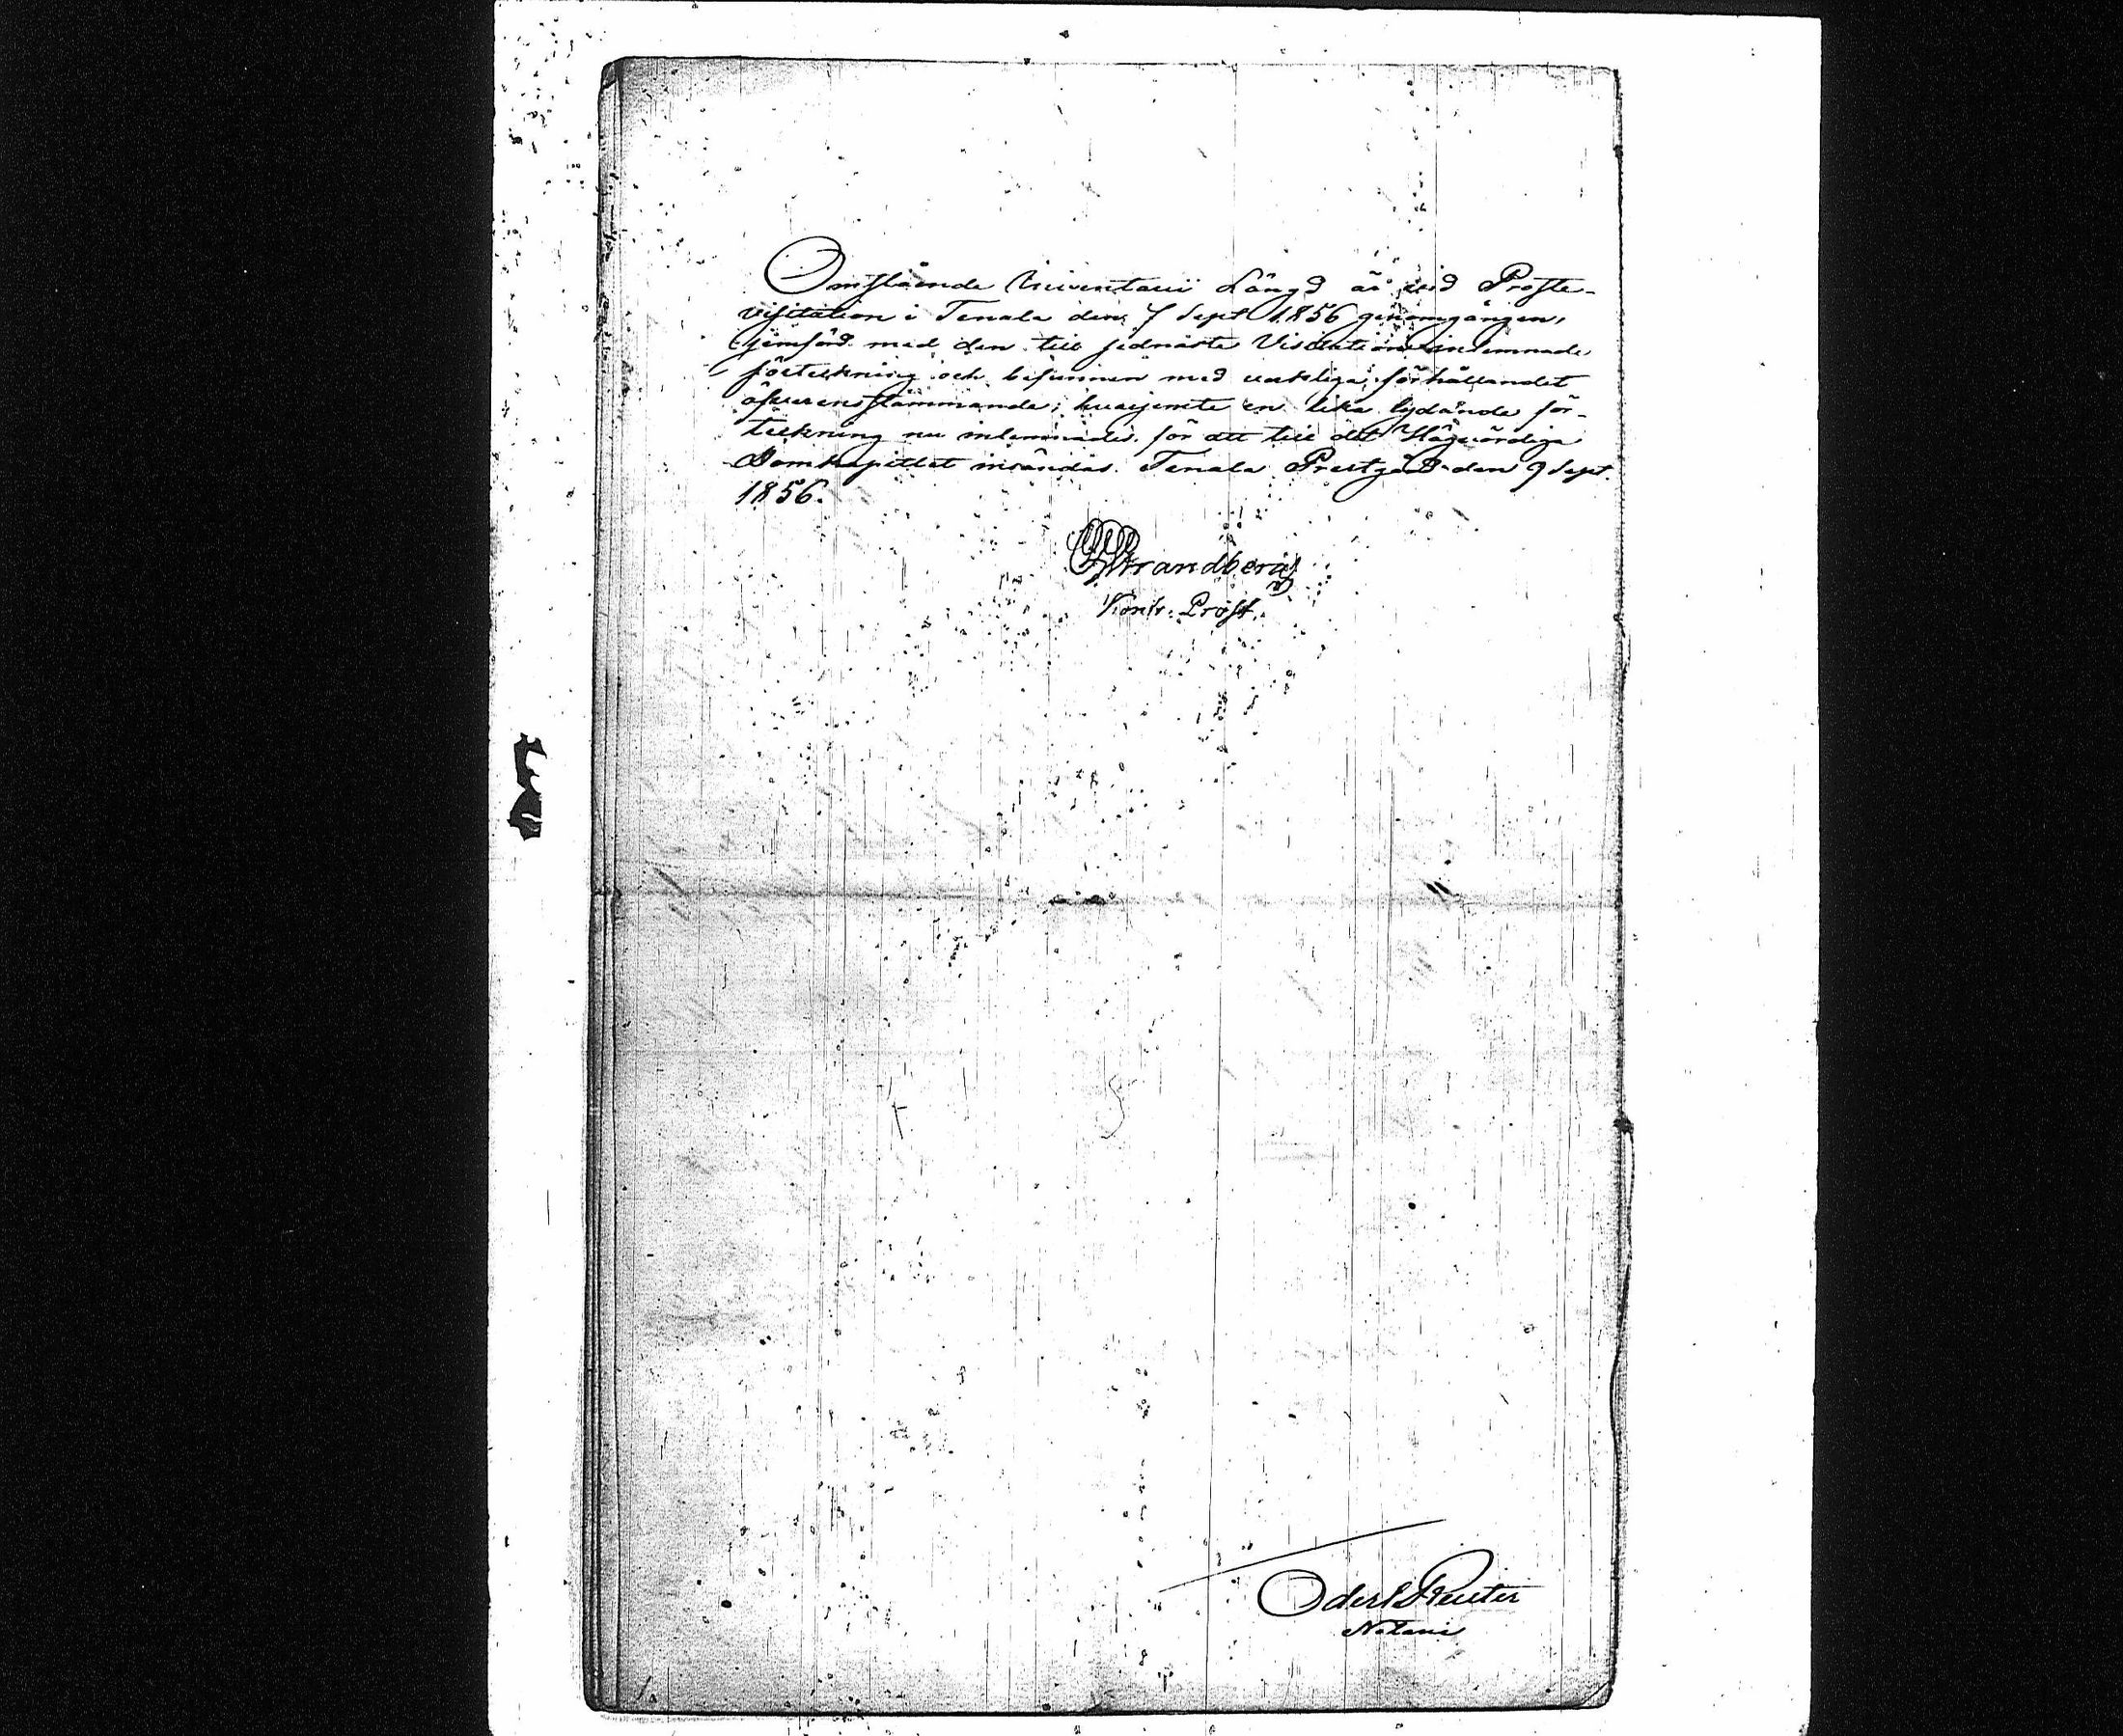 Omstående Inventarii Längd är vid Proste-
visitation i Tenala den 7 Sept 1856 genomgången,
jemförd med den till sednaste Visitation inlemnade
förteckning och befunnen med verkliga förhållandet
öfverensstämmande; hvarjemte en lika lydande för-
teckning nu inlemnades för att till det Högvördiga
Domkapitlet insändas. Tenala Prestgård den 9 Sept.
1856.
Strandberg
Kontr. Prost.
Reuter
Notarie